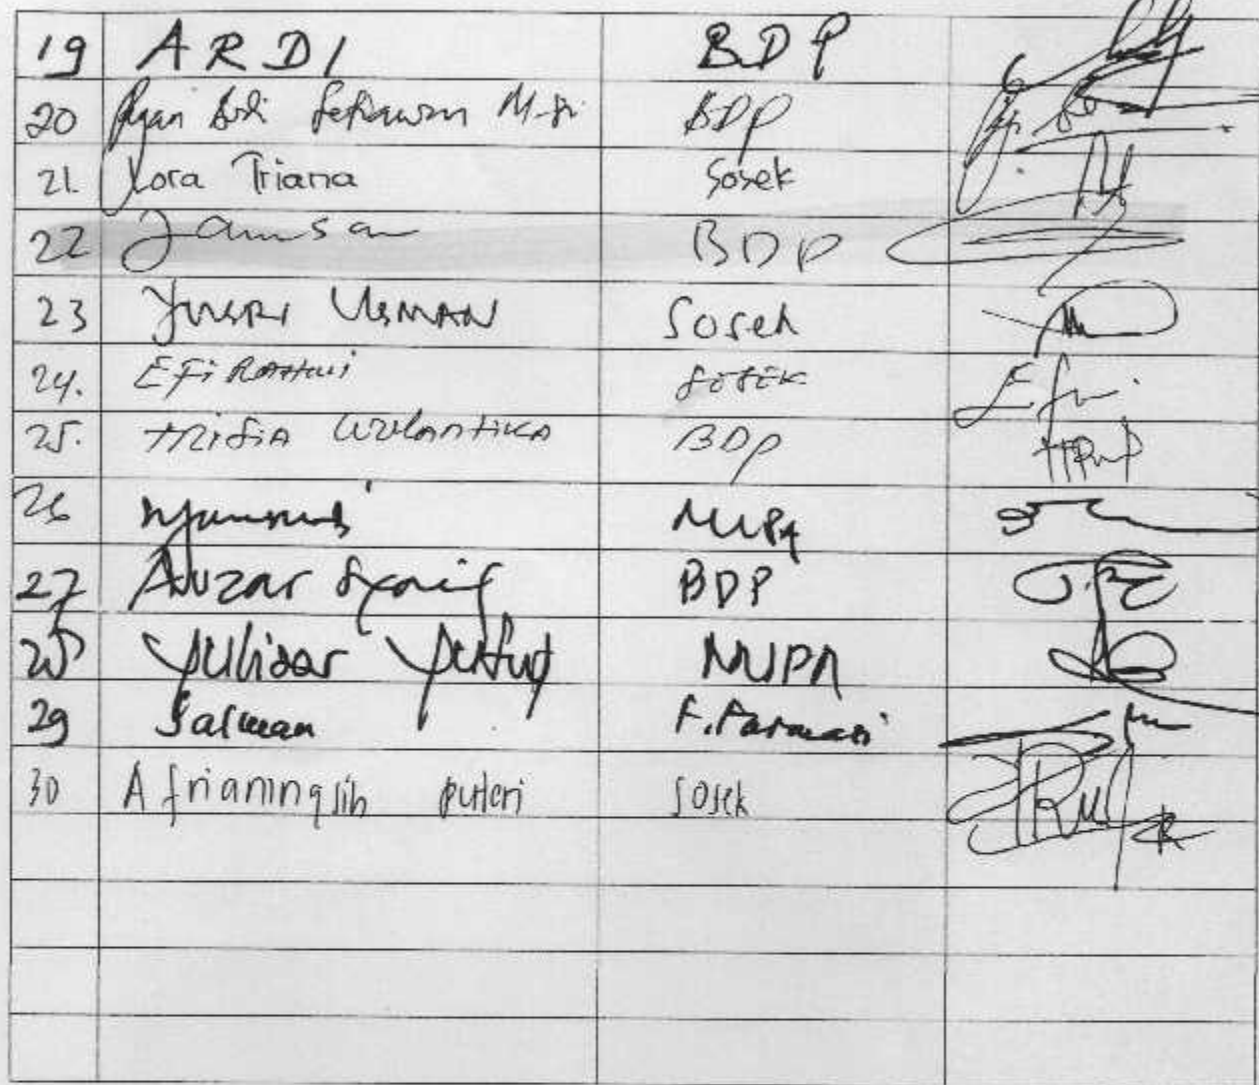 19 ARDI BDP
20 Ryan Budi Setiawan M.Si BDP
21. Yora Triana Sosek
22 Jamsari BDP
23 Yusri Usman Sosek
24. Efi Sosek
25. BDP
26 MIPA
27 Auzar Syarif BDP
28 Yulizar Yusuf MIPA
29 Salman F. Farmasi
30 Afrianingsih puteri Sosek